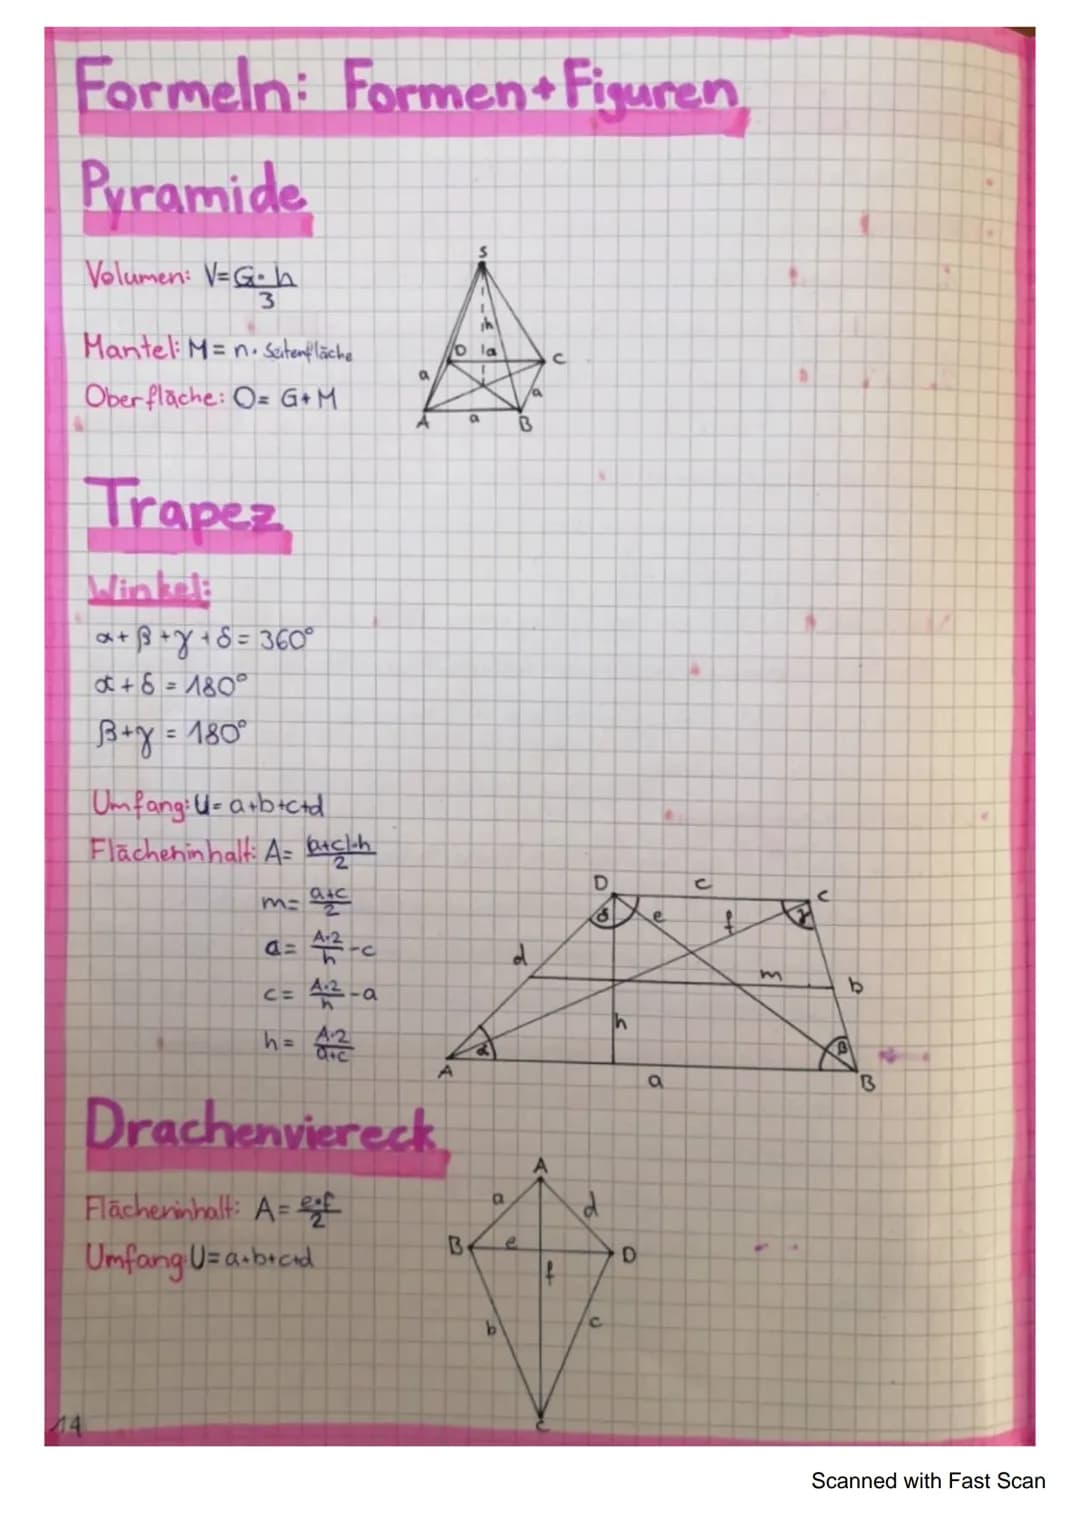 Formeln: Formen+Figuren
Pyramide
Volumen: V=G·h/3
Mantel: M= n· Seitenfläche
Oberfläche: O= G+M
S
h
D
a
C
a
a
A
a
B
Trapez
Winkel:
α+β+γ+δ= 360°
α+δ = 180°
β+γ = 180°
Umfang: U= a+b+c+d
Flächeninhalt: A= (a+c)·h/2
m= a+c/2
a= A·2/h -c
c= A·2/h -a
h= A·2/a+c
D
c
C
δ
e
f
γ
d
m
b
h
α
β
A
a
B
Drachenviereck
Flächeninhalt: A= e·f/2
Umfang: U= a+b+c+d
A
a
d
B
e
D
f
b
c
C
14
Scanned with Fast Scan